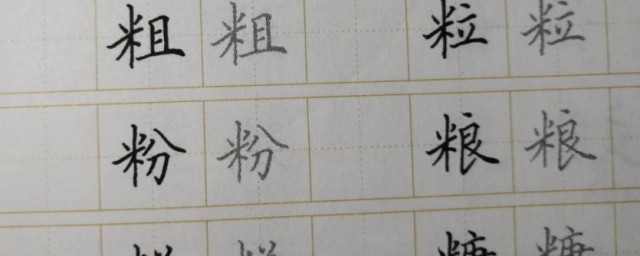 粗 粗 粒 粒
粉 粉 粮 粮
糖 糖